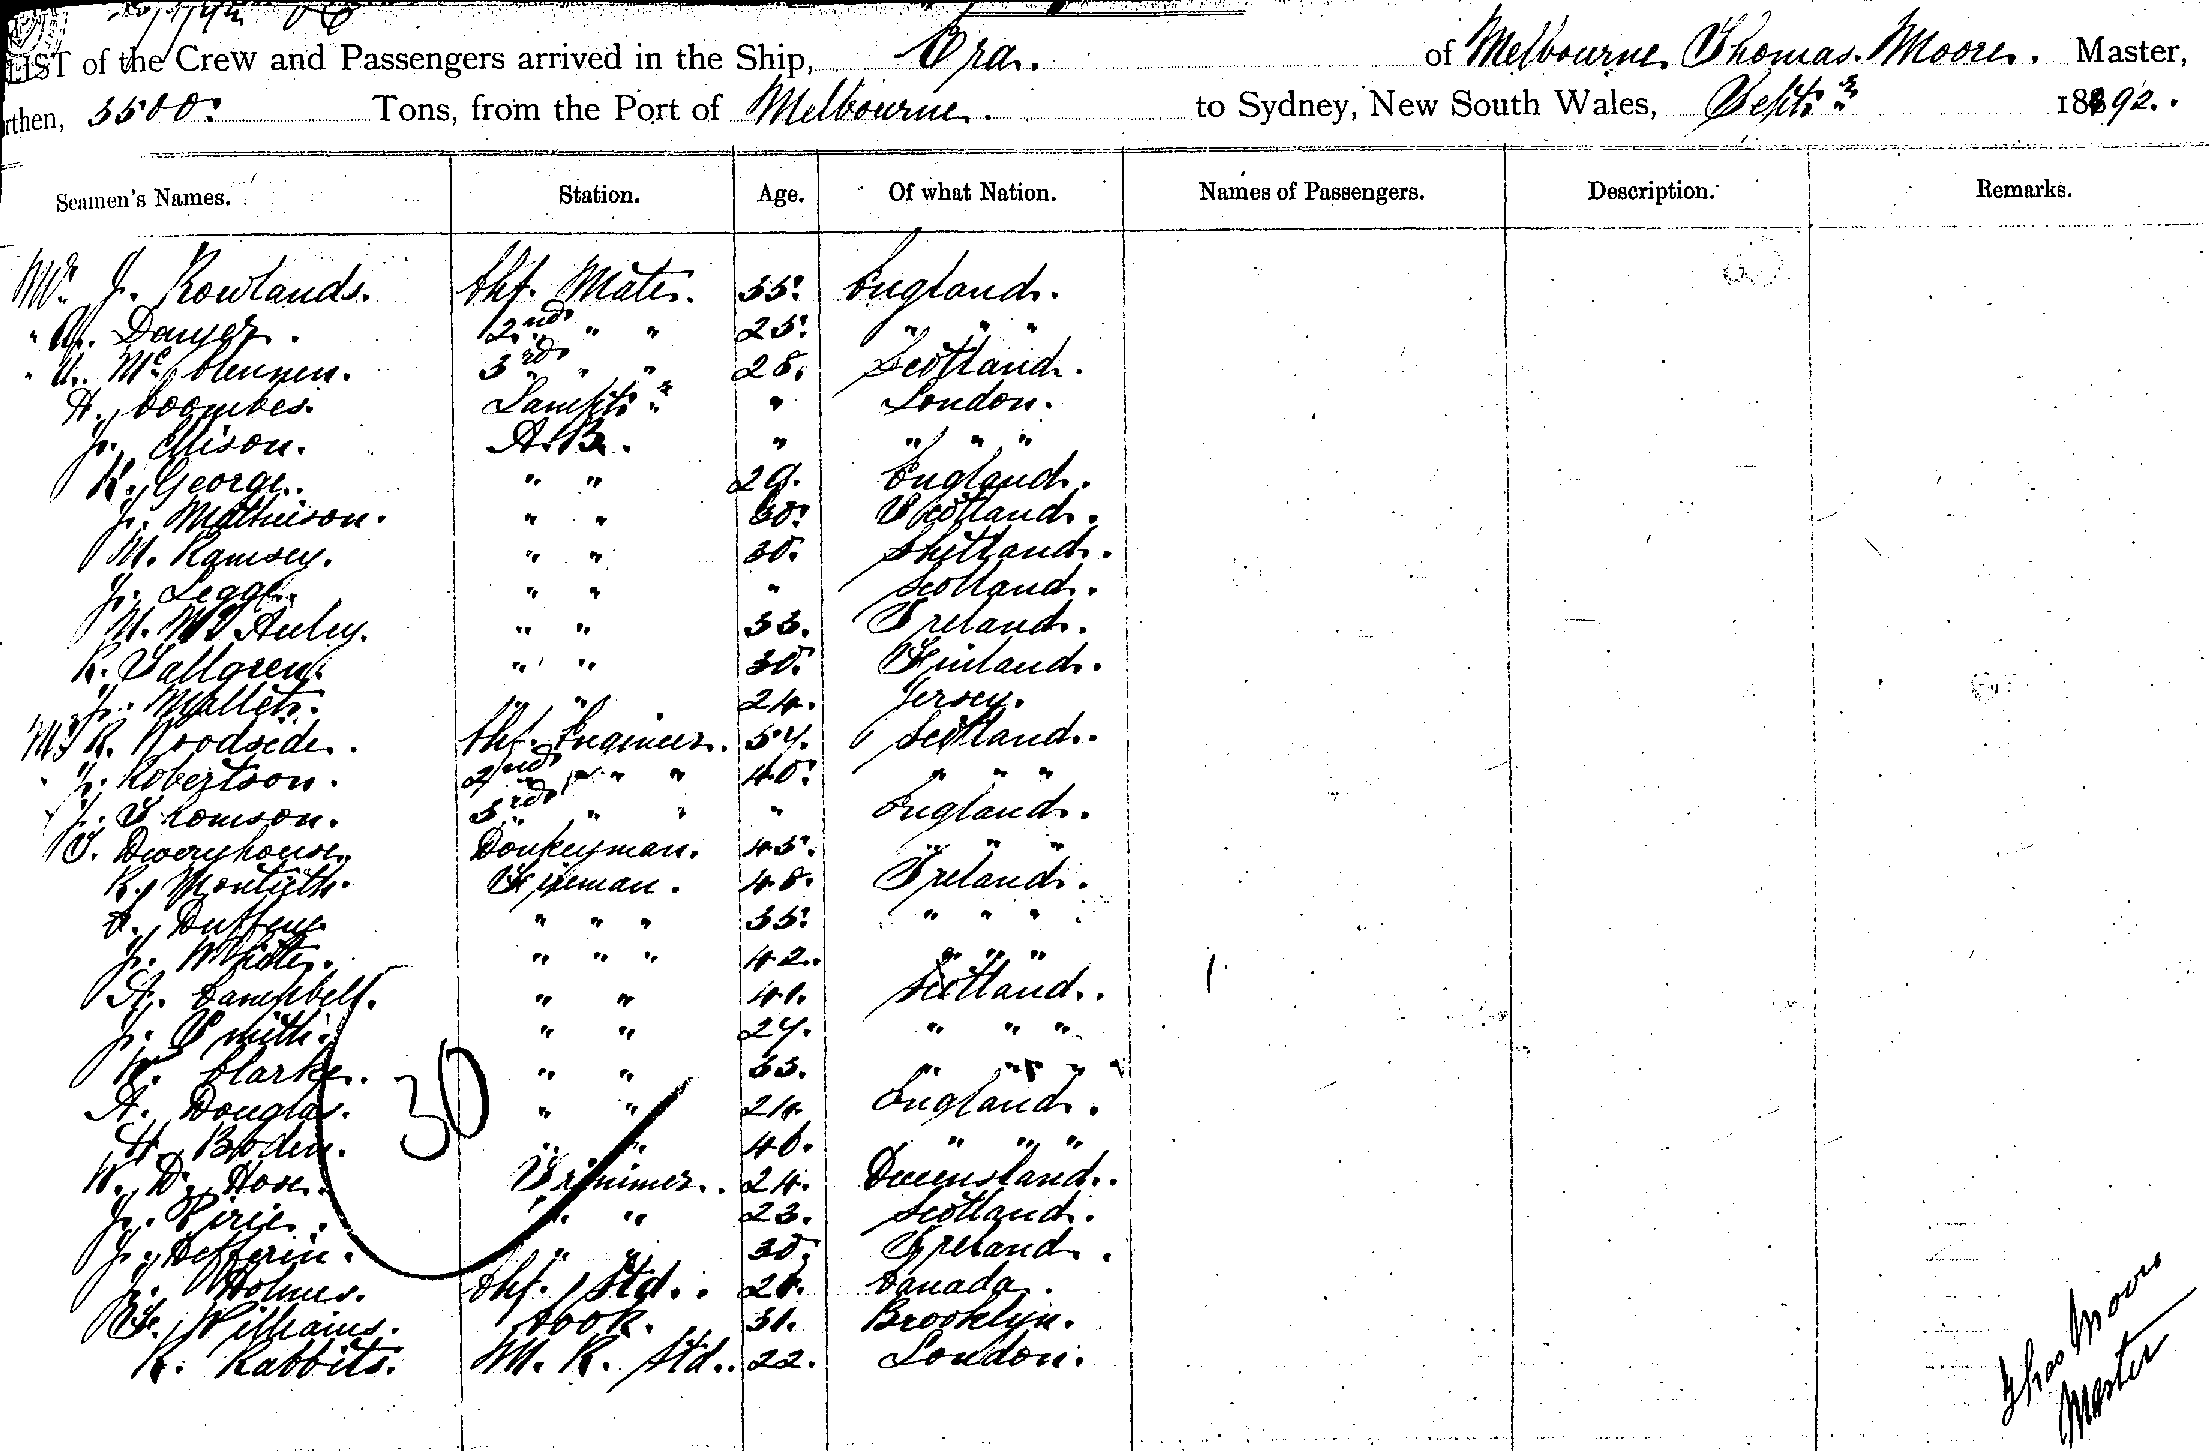 LIST of the Crew and Passengers arrived in the Ship, Era. of Melbourne. Thomas. Moore. Master,
rthen, 3500. Tons, from the Port of Melbourne. to Sydney, New South Wales, Septr. 3 1892.
Seamen's Names. Station. Age. Of what Nation. Names of Passengers. Description. Remarks.
Mr. J. Rowlands. Chf. Mate. 55. England.
" Danger. 2nd " " 25. " " "
" Mc 3rd " " 28. Scotland.
H. Coombes. Lampts. " London.
J. Ellison. A.B. " " " "
R. George. " " 29. England.
J. Mathieson. " " 30. Scotland.
M. Ramsey. " " 30. Shetland.
J. Legge. " " " Scotland.
M. McAuley. " " 33. Ireland.
K. Tallgren. " " 30. Finland.
J. Mallet. " " 24. Jersey.
Mr R. Woodside. Chf. Engineer. 57. Scotland.
" J. Robertson. 2nd " " 40. " " "
" J. Thomson. 3rd " " " England.
T. Dweryhouse. Donkeyman. 45. " " "
R. Montieth. Fireman. 40. Ireland.
Duffeny " " " 35. " " "
J. White. " " " 42. " " "
A. Campbell. " " 41. Scotland.
J. Smith. " " 27. " " "
W. Clarke. " " 33. " " " "
30
A. Douglas. " " 24. England.
H. Boden. " " 40. " " "
W. D. Hose. Trimmer. 24. Queensland.
J. Pirie. " " 23. Scotland.
J. Defferin. " " 30. Ireland.
J. Holmes. Chf. Std. 28. Canada.
F. Williams. Cook. 31. Brooklyn.
R. Rabbits. M. R. Std. 22. London.
Thos Moore
Master